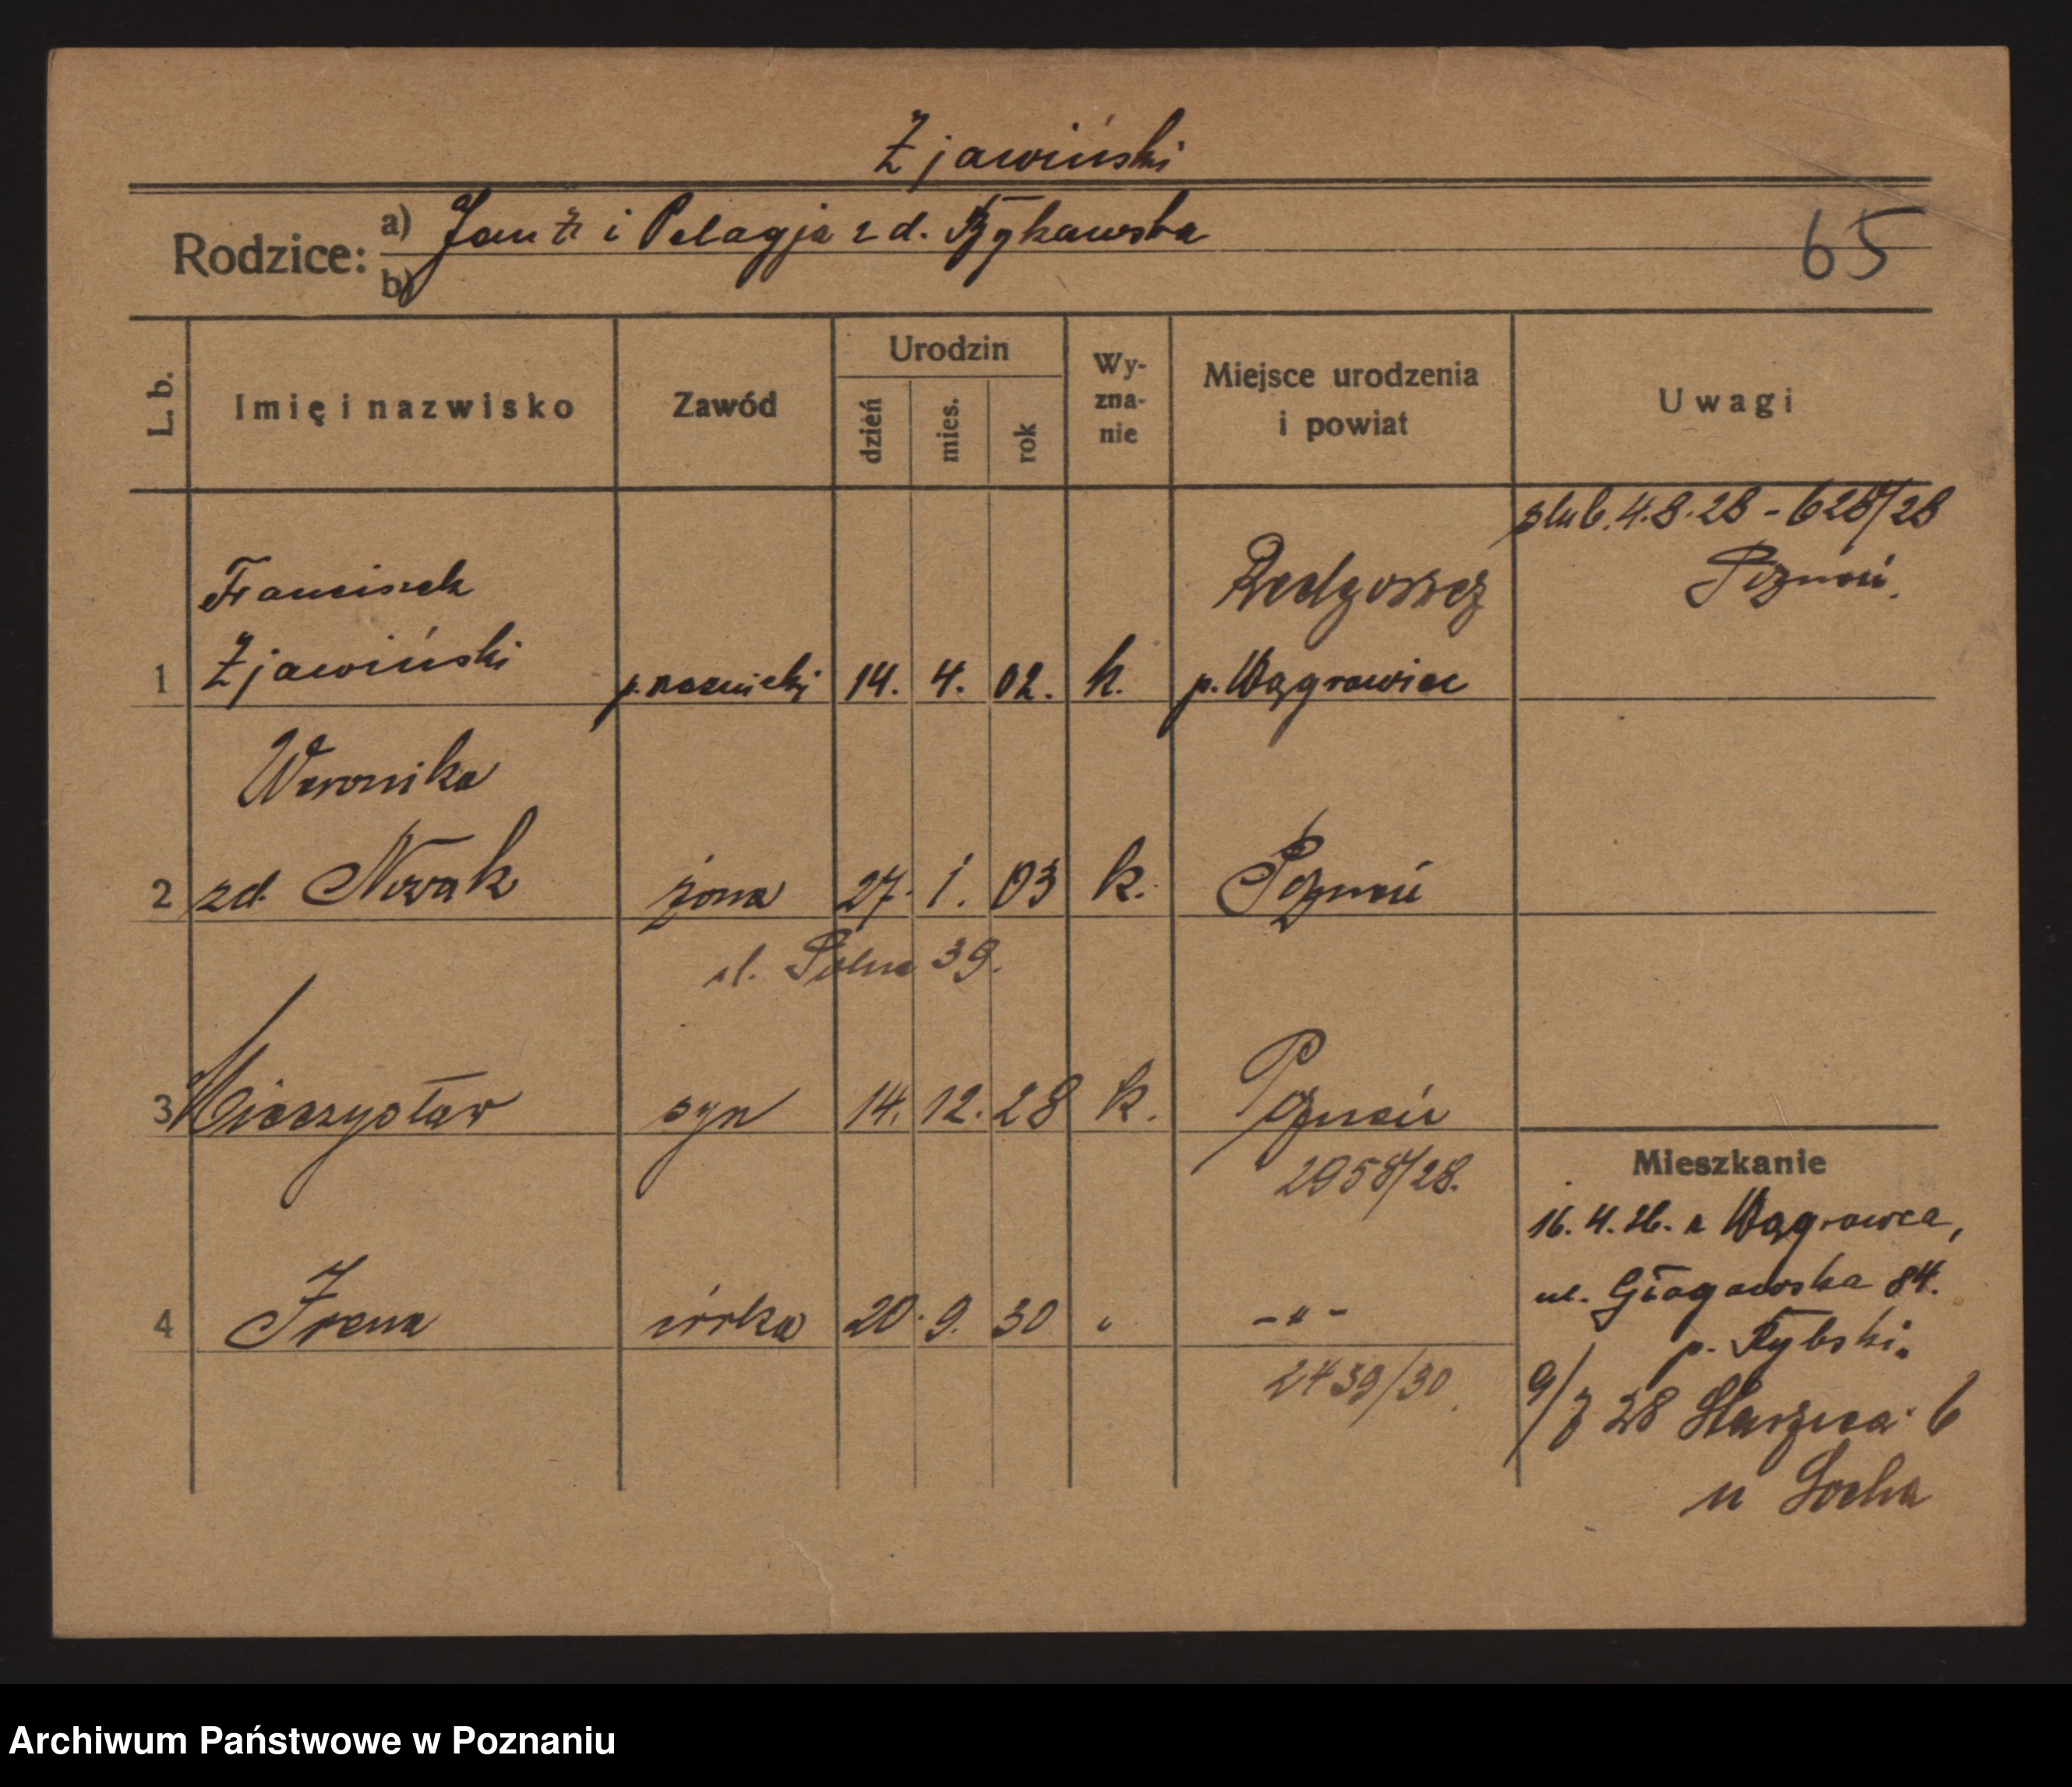 Zjawiński
Rodzice: a) Jan Z i Pelagja z d. Bykowska
b)
65
L. b.
Imię i nazwisko
Zawód
Urodzin
dzień
mies.
rok
Wy-
zna-
nie
Miejsce urodzenia
i powiat
Uwagi
ślub. 4.8.28 - 628/28
Poznań.
Franciszek
1 Zjawiński p. rzeźnicki 14. 4. 02. k. p. Wągrowiec
Weronika
2 zd. Nowak żona 27. 1. 03 k. Poznań
ul. Polna 39.
3 Mieczysław syn 14. 12. 28 k. Poznań
2958/28.
4 Irena córka 20. 9. 30 " -"-
2439/30.
Mieszkanie
16. 4. 26. z Wągrowca,
ul. Głogowska 84.
p. Rybski.
9/7 28 Staszica 6
u Socha
Archiwum Państwowe w Poznaniu